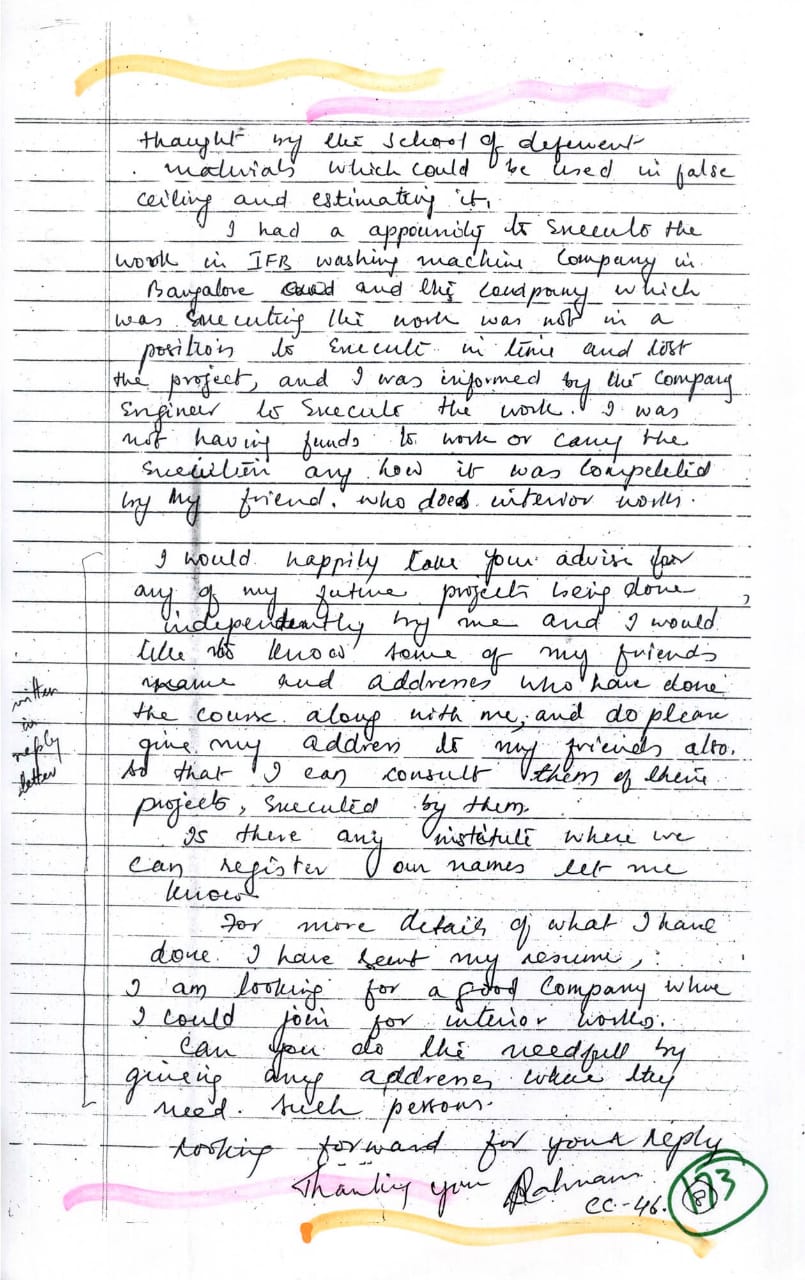 thaught by the school of deferent
materials which could be used in false
ceiling and estimating it.
I had a appounity to Execute the
work in IFB washing machine Company in
Bangalore and the Condpany which
was Executing the work was not in a
position to Execute in time and lost
the project, and I was informed by the Company
Engineer to Execute the work. I was
not having funds to work or carry the
Execution any how it was Compeleted
by My friend. who does interior works.
I would happily take your advise for
any of my future projects being done,
independently by me and I would
like to know some of my friends
name and addresses who have done
the course along with me, and do please
give my address to my friends also.
so that I can consult them of their
projects, Executed by them.
Is there any institute where we
can register our names let me
know
written
in
reply
letter
For more details of what I have
done. I have sent my resume,
I am looking for a good Company where
I could join for interior works.
Can you do the needfull by
giveing any addresses where they
need such persons.
Looking forward for your reply
Thanking you
CC-46.